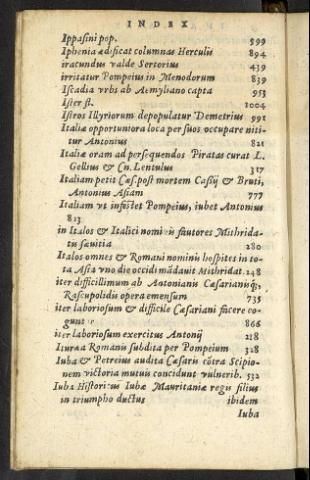 INDEX
Ippasini pop. 599
Iphenia ædificat columnas Herculis 894
iracundus valde Sertorius 439
irritatur Pompeius in Menodorum 839
Iscadia vrbs ab Aemyliano capta 953
Ister fl. 1004
Istros Illyriorum depopulatur Demetrius 991
Italiæ opportuniora loca per suos occupare niti-
tur Antonius 821
Italiæ oram ad persequendos Piratas curat L.
Gellius & Cn. Lentulus 317
Italiam petit Cæs. post mortem Cassij & Bruti,
Antonius Asiam 777
Italiam vt infestet Pompeius, iubet Antonius
813
in Italos & Italici nominis fautores Mithrida-
tis sæuitia 280
Italos omnes & Romani nominis hospites in to-
ta Asia vno die occidi mādauit Mithridat. 248
iter difficillimum ab Antonianis Cæsarianisq;
Rascupolidis opera emensum 735
iter laboriosum & difficile Cæsariani facere co-
guntur 866
iter laboriosum exercitus Antonij 218
Ituræa Romanis subdita per Pompeium 328
Iuba & Petreius audita Cæsaris cōtra Scipio-
nem victoria mutuis concidunt vulnerib. 532
Iuba Historicus Iubæ Mauritaniæ regis filius
in triumpho ductus ibidem
Iuba